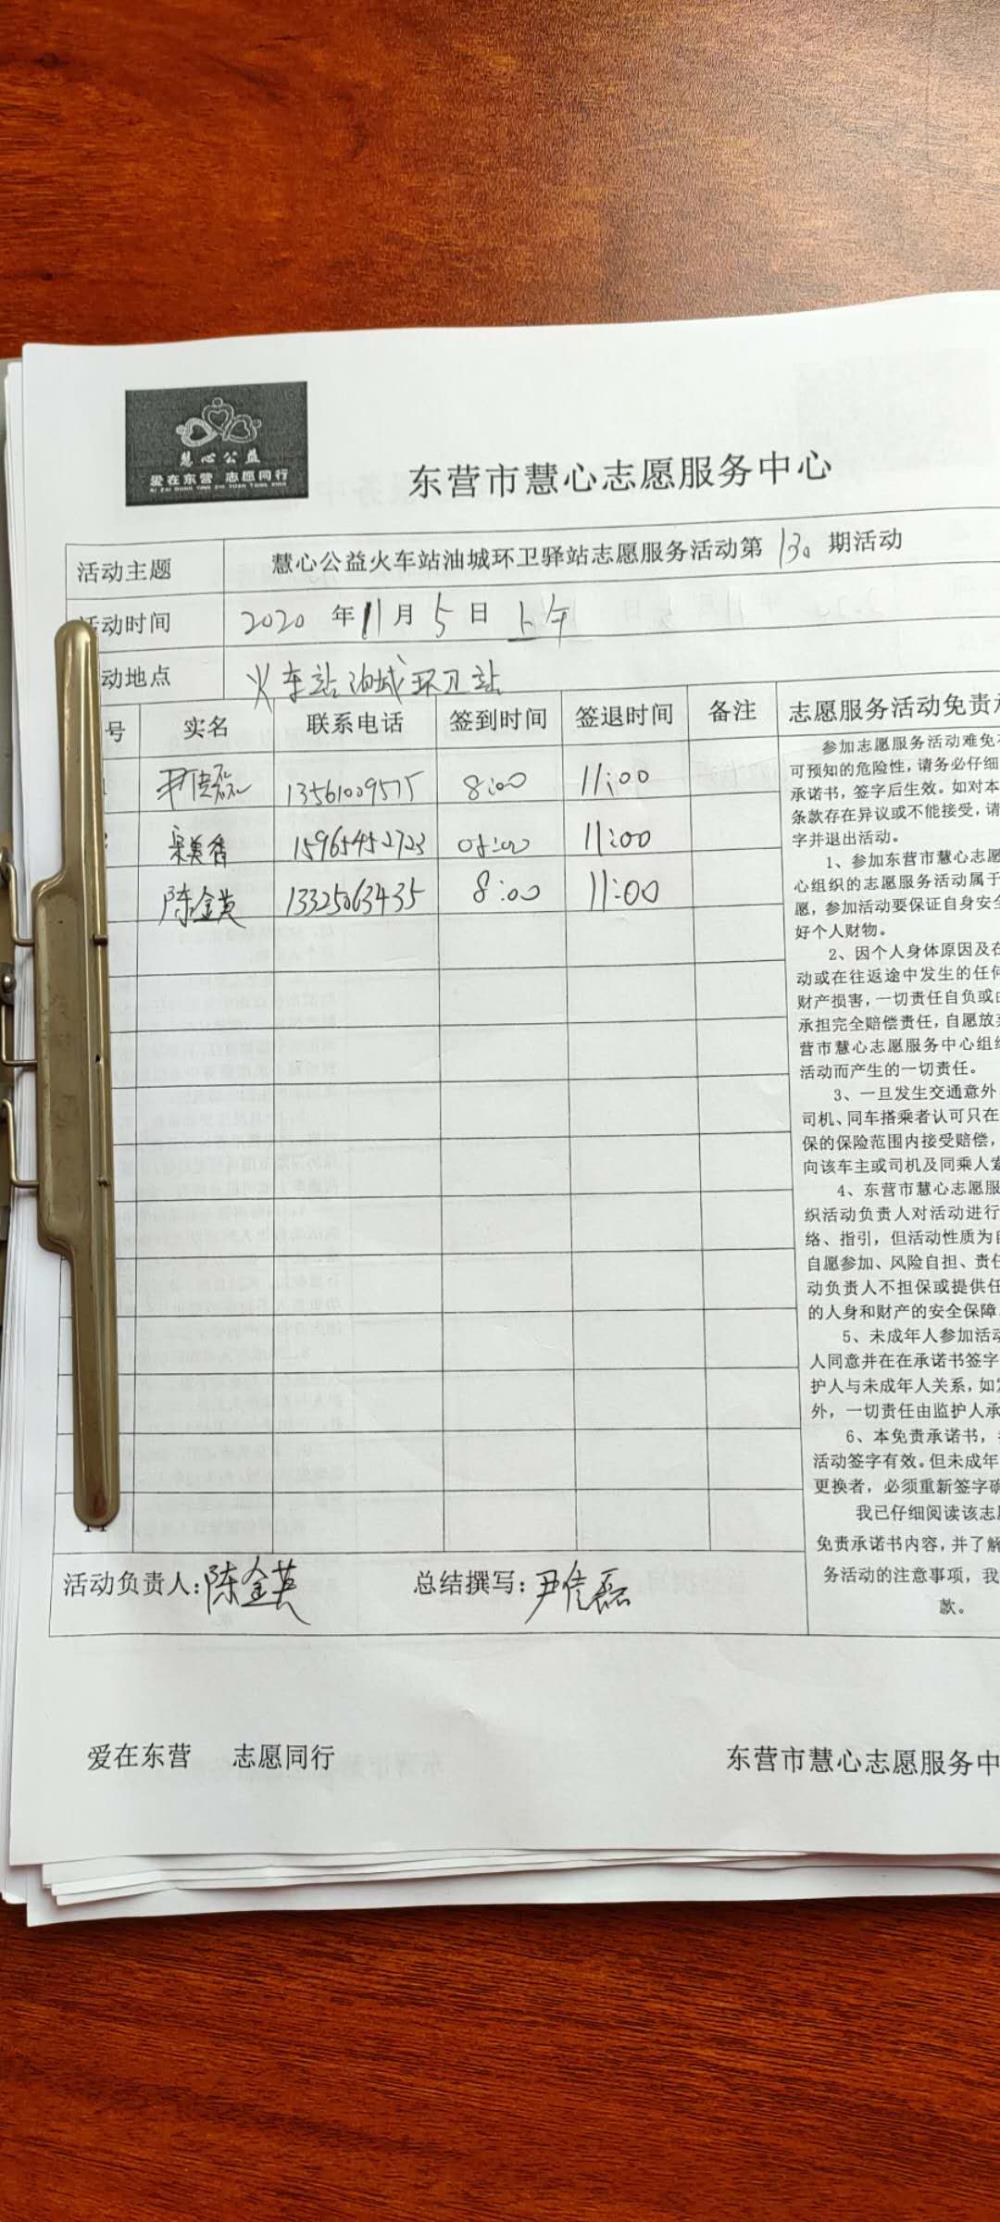 慧心公益
爱在东营 志愿同行
AI ZAI DONG YING ZHI YUAN TONG XING
东营市慧心志愿服务中心
活动主题 慧心公益火车站油城环卫驿站志愿服务活动第130期活动
活动时间 2020年11月5日上午
动地点 火车站油城环卫站
号 实名 联系电话 签到时间 签退时间 备注 志愿服务活动免责
尹信磊 13561009575 8:00 11:00
宋美香 15965452723 08:00 11:00
陈金英 13325063435 8:00 11:00
参加志愿服务活动难免
可预知的危险性，请务必仔细
承诺书，签字后生效。如对本
条款存在异议或不能接受，请
字并退出活动。
1、参加东营市慧心志愿
心组织的志愿服务活动属于
愿，参加活动要保证自身安全
好个人财物。
2、因个人身体原因及在
动或在往返途中发生的任何
财产损害，一切责任自负或由
承担完全赔偿责任，自愿放弃
营市慧心志愿服务中心组织
活动而产生的一切责任。
3、一旦发生交通意外
司机、同车搭乘者认可只在
保的保险范围内接受赔偿，
向该车主或司机及同乘人索
4、东营市慧心志愿服
织活动负责人对活动进行
络、指引，但活动性质为自
自愿参加、风险自担、责任
动负责人不担保或提供任
的人身和财产的安全保障
5、未成年人参加活动
人同意并在在承诺书签字
护人与未成年人关系，如发
外，一切责任由监护人承
6、本免责承诺书，
活动签字有效。但未成年
更换者，必须重新签字确
我已仔细阅读该志愿
免责承诺书内容，并了解
务活动的注意事项，我
款。
活动负责人：陈金英 总结撰写：尹信磊
爱在东营 志愿同行 东营市慧心志愿服务中